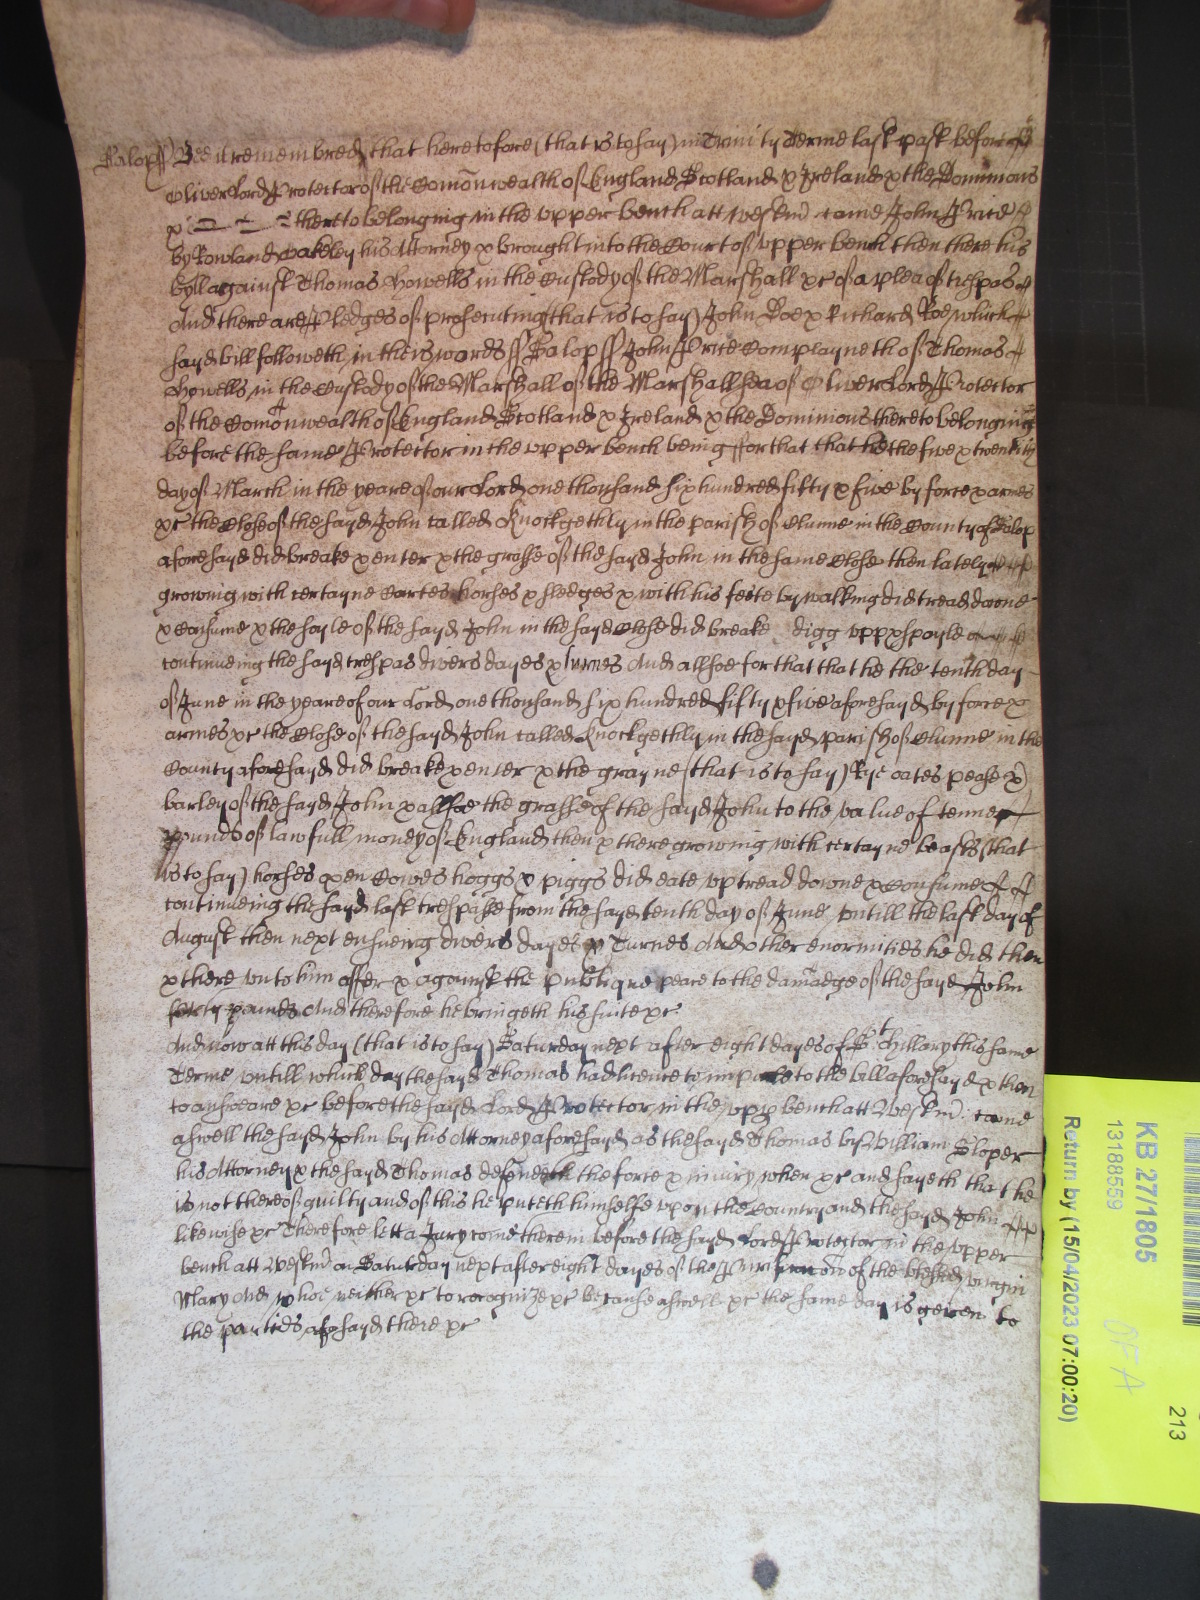 Salop ss Bee it remembred that heretofore (that is to say) in Trinity Terme last past before
Oliver Lord Protector of the Comonwealth of England Scotland & Ireland & the Dominions
& thereto belonging in the upper bench att Westmr came John Price
by Rowland Oakeley his Attorney & brought into the Court of upper bench then there his
byll against Thomas Howells in the Custody of the Marshall &c of a plea of trespas
And there are Pledges of prosecuting (that is to say) John Doe & Richard Roe which
sayd bill followeth in theis words ss Salop ss John Price Complayneth of Thomas
Howells in the Custody of the Marshall of the Marshallsea of Oliver Lord Protector
of the Comonwealth of England Scotland & Ireland & the Dominions thereto belonging
before the same Protector in the upper bench being ffor that that he the five & twentith
day of March in the yeare of our Lord one thousand six hundred fifty & five by force & armes
&c the Close of the sayd John called Knockgethly in the parish of Clunne in the County of Salop
aforesayd did breake & enter & the grasse of the sayd John in the same Close then lately
growing with certayne Cartes horses & sledges & with his feete by walking did tread downe
& Consume & the soyle of the sayd John in the sayd Close did breake digg upp & spoyle
continueing the sayd trespas divers dayes & turnes And allsoe for that that he the tenth day
of June in the yeare of our Lord one thousand six hundred fifty & five aforesayd by force &
armes &c the Close of the sayd John called Knockgethly in the sayd parish of Clunne in the
County aforesayd did breake & enter & the grayne (that is to say) Rye oates pease &
barley of the sayd John & allsoe the grasse of the sayd John to the value of tenne
pounds of lawfull money of England then & there growing with certayne beasts (that
is to say) horses oxen Cowes hoggs & piggs did eate up tread downe & Consume
continueing the sayd last trespasse from the sayd tenth day of June untill the last day of
August then next ensueing divers dayes & Turnes And other enormities he did then
& there unto him offer & against the publique peace to the damadge of the sayd John
forty pounds And therefore he bringeth his suite &c
And now att this day (that is to say) Saturday next after eight dayes of St Hillary this same
Terme untill which day the sayd Thomas had licence to imparle to the bill aforesayd & then
to answeare &c before the sayd Lord Protector in the upp bench att Westmr: came
aswell the sayd John by his Attorney aforesayd as the sayd Thomas by William Sloper
his Attorney & the sayd Thomas defendeth the force & iniury when &c and sayeth that he
is not thereof guilty and of this he puteth himselfe upon the Country and the sayd John
likewise &c Therefore lett a Jury come therein before the sayd Lord Protector in the upper
bench att Westmr on Saturday next after eight dayes of the Purificacon of the blessed virgin
Mary And whoe neither &c to recognize &c because aswell &c the same day is geven to
the parties aforesayd there &c
KB 27/1805
13188559
Return by (15/04/2023 07:00:20)
OFA
213